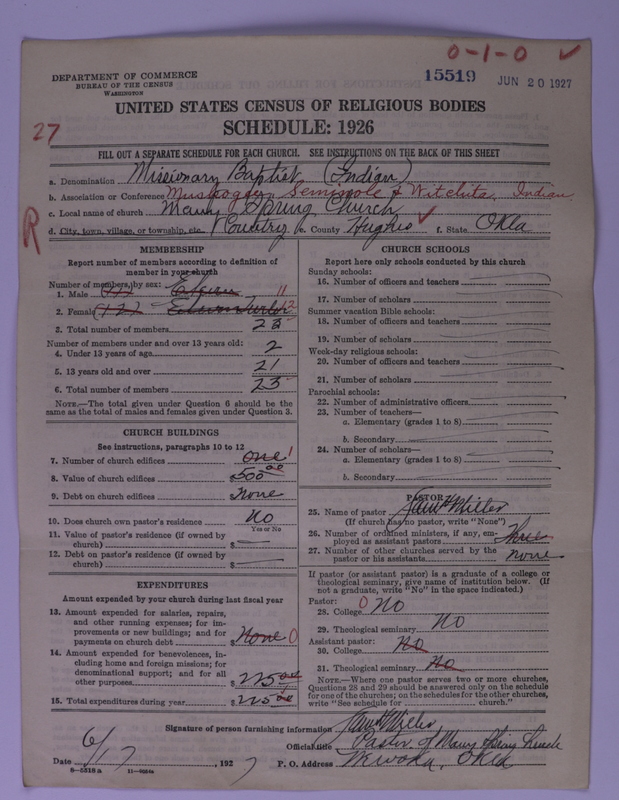 0-1-0 ✓
DEPARTMENT OF COMMERCE
BUREAU OF THE CENSUS
WASHINGTON
15519 JUN 20 1927
UNITED STATES CENSUS OF RELIGIOUS BODIES
27
SCHEDULE: 1926
FILL OUT A SEPARATE SCHEDULE FOR EACH CHURCH. SEE INSTRUCTIONS ON THE BACK OF THIS SHEET
a. Denomination Missionary Baptist (Indian)
b. Association or Conference Muskogee, Seminole & Witchita, Indian
c. Local name of church Many Spring Church
R
d. City, town, village, or township, etc. (Country) e. County Hughes ✓ f. State Okla
MEMBERSHIP
Report number of members according to definition of
member in your church
Number of members, by sex:
1. Male (11) 11
2. Female (12) 12
3. Total number of members 23
Number of members under and over 13 years old:
4. Under 13 years of age 2
5. 13 years old and over 21
6. Total number of members 23
NOTE.—The total given under Question 6 should be the
same as the total of males and females given under Question 3.
CHURCH BUILDINGS
See instructions, paragraphs 10 to 12
7. Number of church edifices one 1
8. Value of church edifices $500 00
9. Debt on church edifices None
10. Does church own pastor's residence No
Yes or No
11. Value of pastor's residence (if owned by
church) $
12. Debt on pastor's residence (if owned by
church) $
EXPENDITURES
Amount expended by your church during last fiscal year
13. Amount expended for salaries, repairs,
and other running expenses; for im-
provements or new buildings; and for
payments on church debt $ None 0
14. Amount expended for benevolences, in-
cluding home and foreign missions; for
denominational support; and for all
other purposes $ 225 00
15. Total expenditures during year $ 225 00
CHURCH SCHOOLS
Report here only schools conducted by this church
Sunday schools:
16. Number of officers and teachers
17. Number of scholars
Summer vacation Bible schools:
18. Number of officers and teachers
19. Number of scholars
Week-day religious schools:
20. Number of officers and teachers
21. Number of scholars
Parochial schools:
22. Number of administrative officers
23. Number of teachers—
a. Elementary (grades 1 to 8)
b. Secondary
24. Number of scholars—
a. Elementary (grades 1 to 8)
b. Secondary
PASTOR
25. Name of pastor Miller
(If church has no pastor, write "None")
26. Number of ordained ministers, if any, em-
ployed as assistant pastors Three
27. Number of other churches served by the
pastor or his assistants none
If pastor (or assistant pastor) is a graduate of a college or
theological seminary, give name of institution below. (If
not a graduate, write "No" in the space indicated.)
Pastor:
28. College 0 No
29. Theological seminary No
Assistant pastor:
30. College No
31. Theological seminary No
NOTE.—Where one pastor serves two or more churches,
Questions 28 and 29 should be answered only on the schedule
for one of the churches; on the schedules for the other churches,
write "See schedule for church."
Signature of person furnishing information Miller
Official title Pastor of Many Spring Church
Date 6/17 1927 P. O. Address Wewoka, Okla